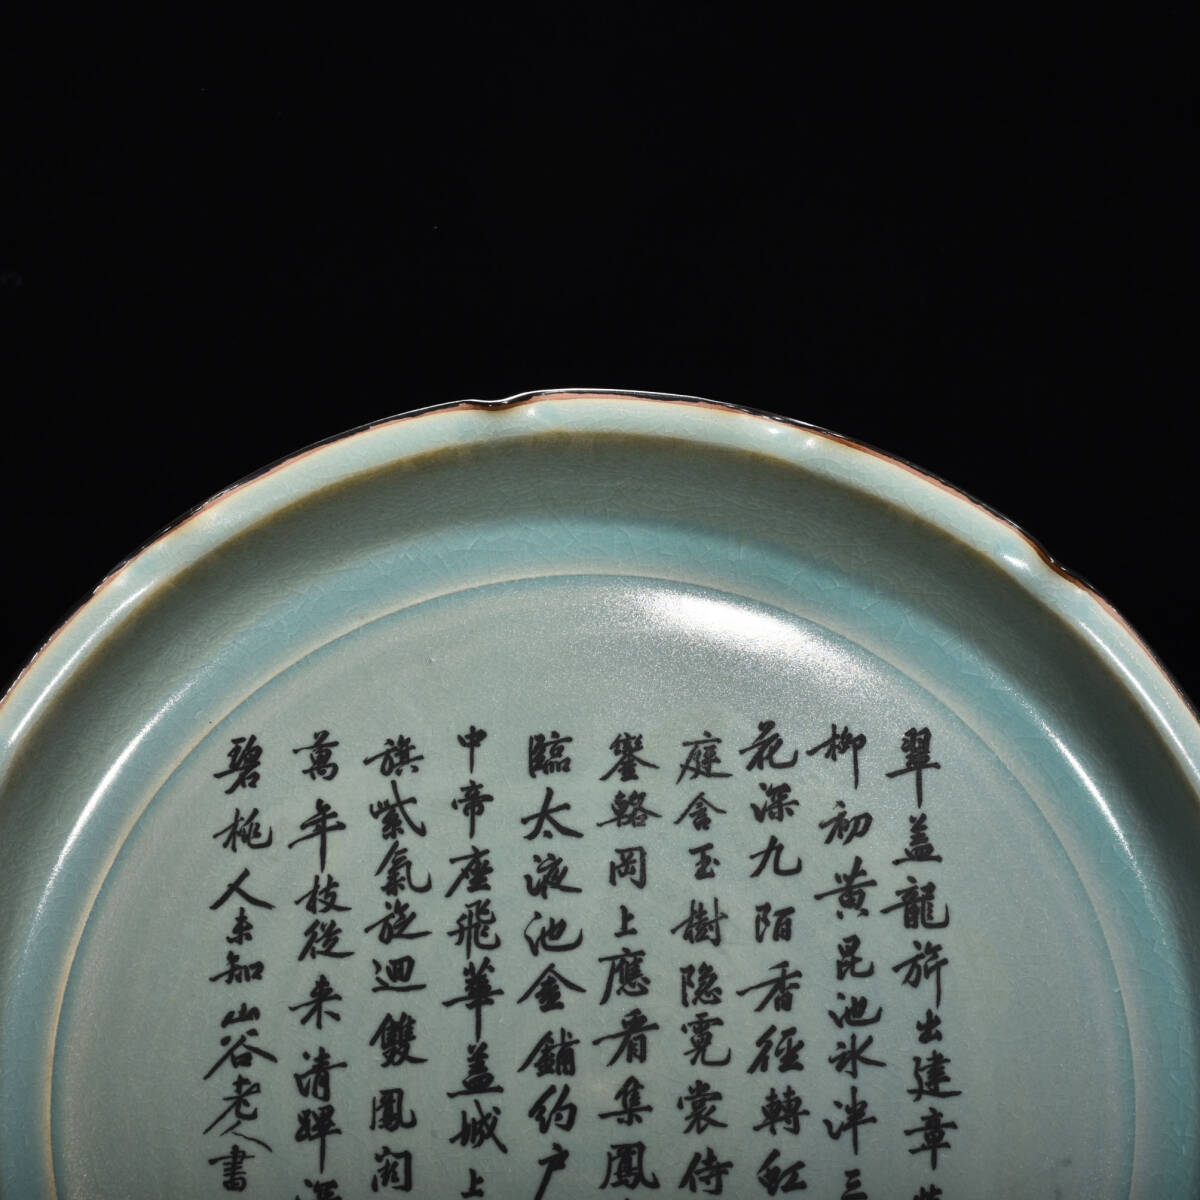 翠盖龍旂出建章
柳初黄昆池冰泮三
花深九陌香徑轉虹
庭含玉樹隐霓裳侍
鑾輅岡上應看集鳳
臨太液池金鋪約户
中帝座飛華盖城上
旗紫氣旋迴雙鳳闕
萬年枝從来清蹕深
碧桃人未知山谷老人書